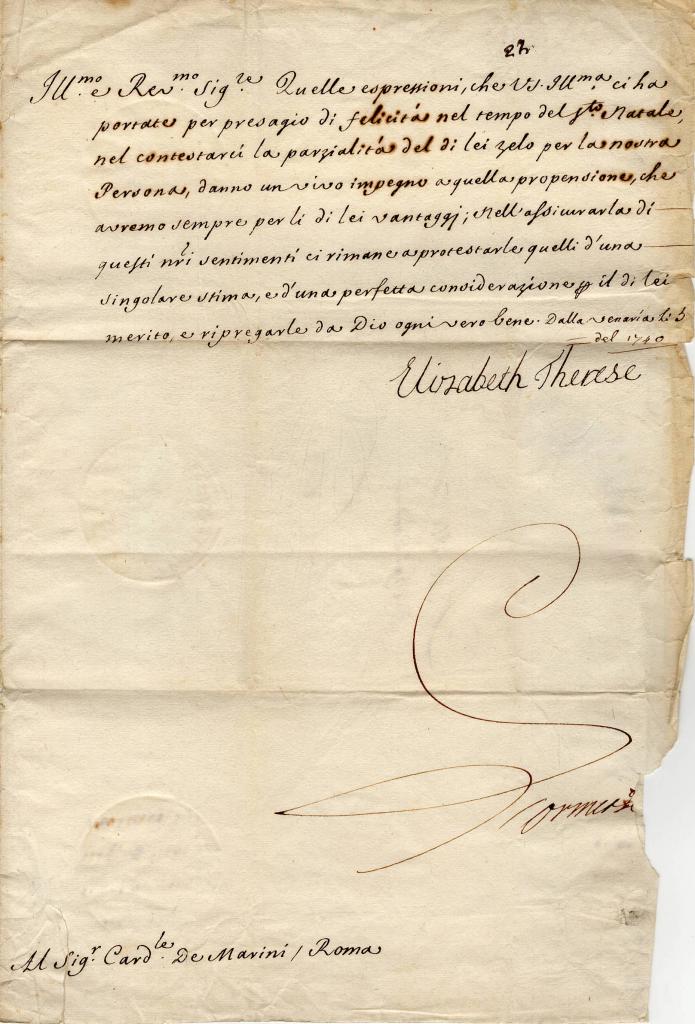 Ill.mo e Rev.mo Sig.re Quelle espressioni, che VS. Ill.ma ci ha
portate per presagio di felicità nel tempo del S.to Natale,
nel contestarci la parzialità del di lei zelo per la nostra
Persona, danno un vivo impegno a quella propensione, che
avremo sempre per li di lei vantaggj; Nell'assicurarla di
questi nri sentimenti ci rimane a protestarle quelli d'una
singolare stima, e d'una perfetta considerazione p il di lei
merito, e ripregarle da Dio ogni vero bene. Dalla Venaria li 3
del 1740
Elizabeth Therese
Al Sig.r Card.le De Marini / Roma